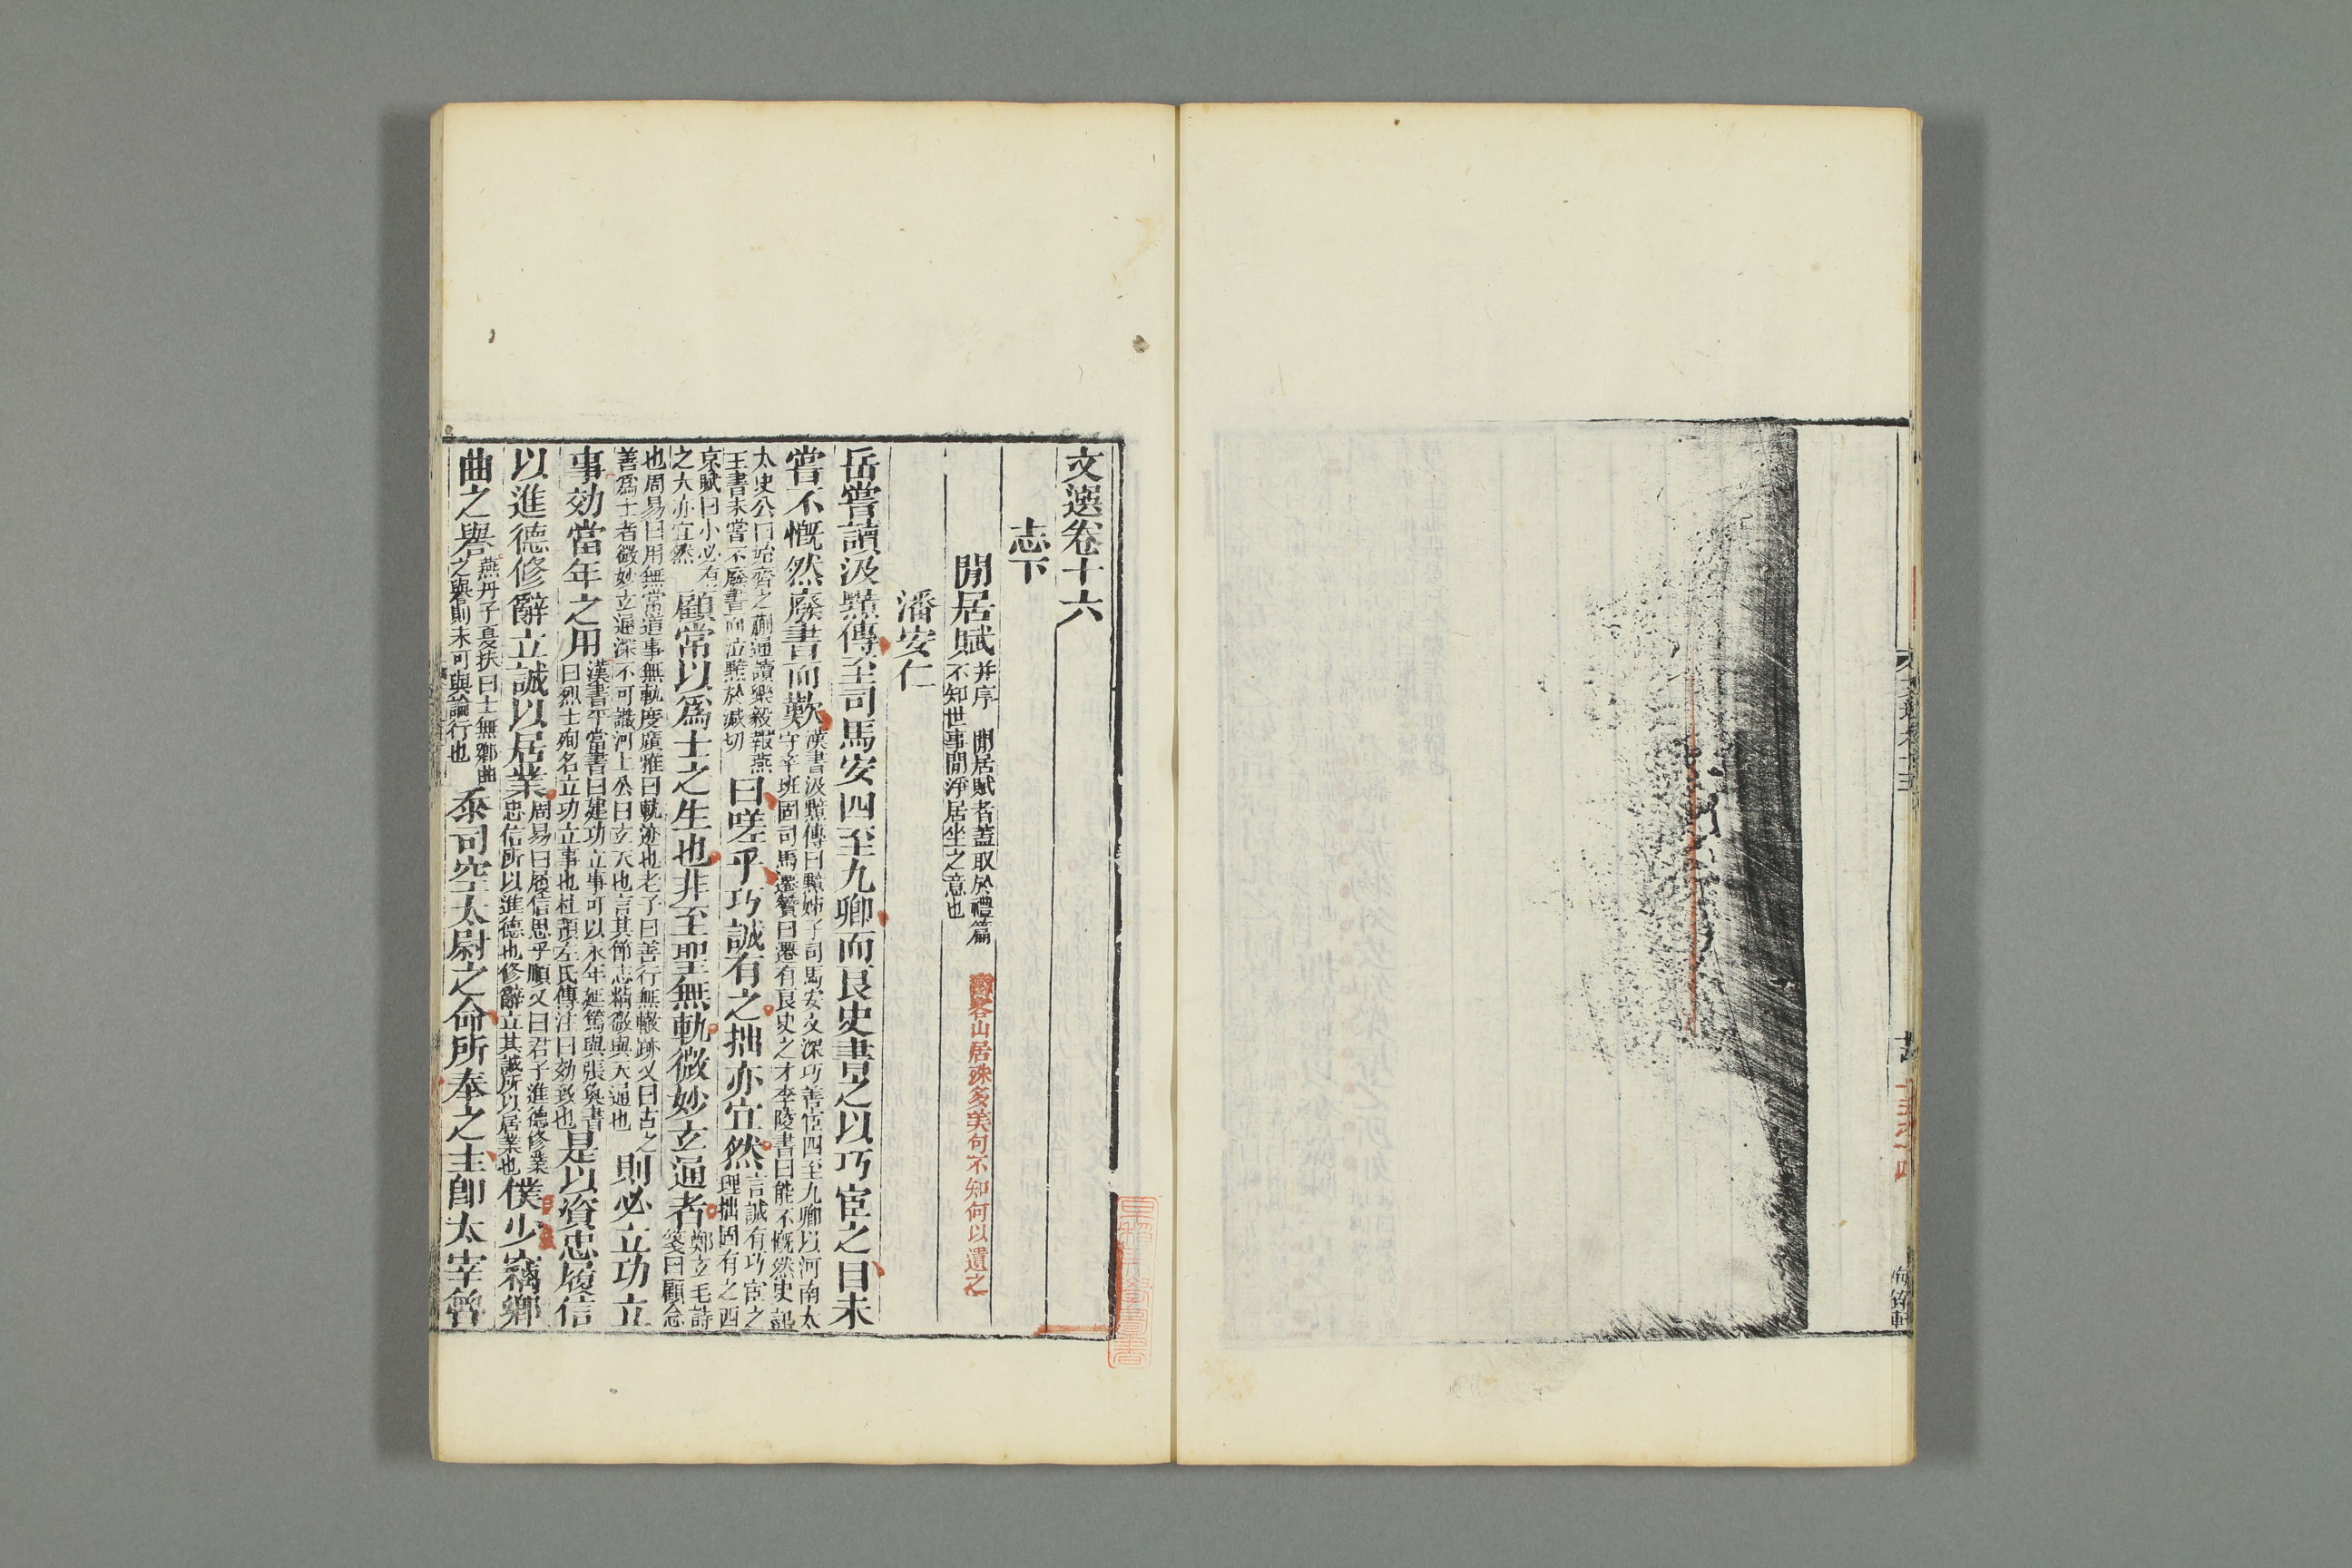 文選卷十六
志下
閒居賦
并序 閒居賦者蓋取於禮篇
不知世事閒淨居坐之意也
潘安仁
岳嘗讀汲黯傳至司馬安四至九卿而良史書之以巧宦之目未
嘗不慨然廢書而歎
漢書汲黯傳曰黯姊子司馬安文深巧善宦四至九卿以河南太
守卒班固司馬遷贊曰遷有良史之才李陵書曰能不慨然史記
太史公曰始齊之蒯通讀樂毅報燕
王書未嘗不廢書而泣黯於減切
曰嗟乎巧誠有之拙亦宜然
言誠有巧宦之
理拙固有之西
京賦曰小必有
之大亦宜然
顧常以爲士之生也非至聖無軌微妙玄通者
鄭玄毛詩
箋曰顧念
也周易曰用無常道事無軌度廣雅曰軌迹也老子曰善行無轍跡又曰古之
善爲士者微妙玄通深不可識河上公曰玄天也言其節志精微與天通也
則必立功立
事効當年之用
漢書平當書曰建功立事可以永年延篤與張奐書
曰烈士殉名立功立事也杜預左氏傳注曰効致也
是以資忠履信
以進德修辭立誠以居業
周易曰履信思乎順又曰君子進德修業
忠信所以進德也修辭立其誠所以居業也
僕少竊鄉
曲之譽
燕丹子夏扶曰士無鄉曲
之譽則未可與論行也
忝司空太尉之命所奉之主卽太宰魯
客山居殊多美句不知何以遺之